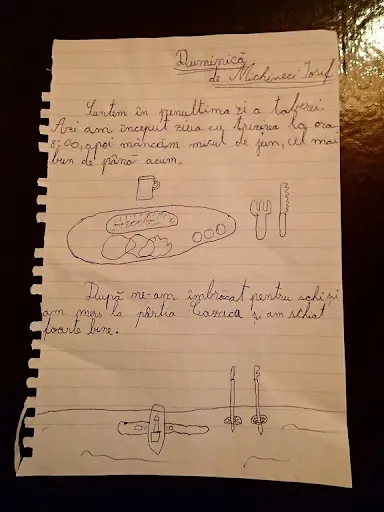 Duminică
de Michineci Iosif
Suntem în penultima zi a taberei.
Azi am început ziua cu trezirea la ora
8:00, apoi mâncăm micul de jun, cel mai
bun de până acum.
După ne-am îmbrăcat pentru schi și
am mers la pârtia Cazacu și am schiat
foarte bine.